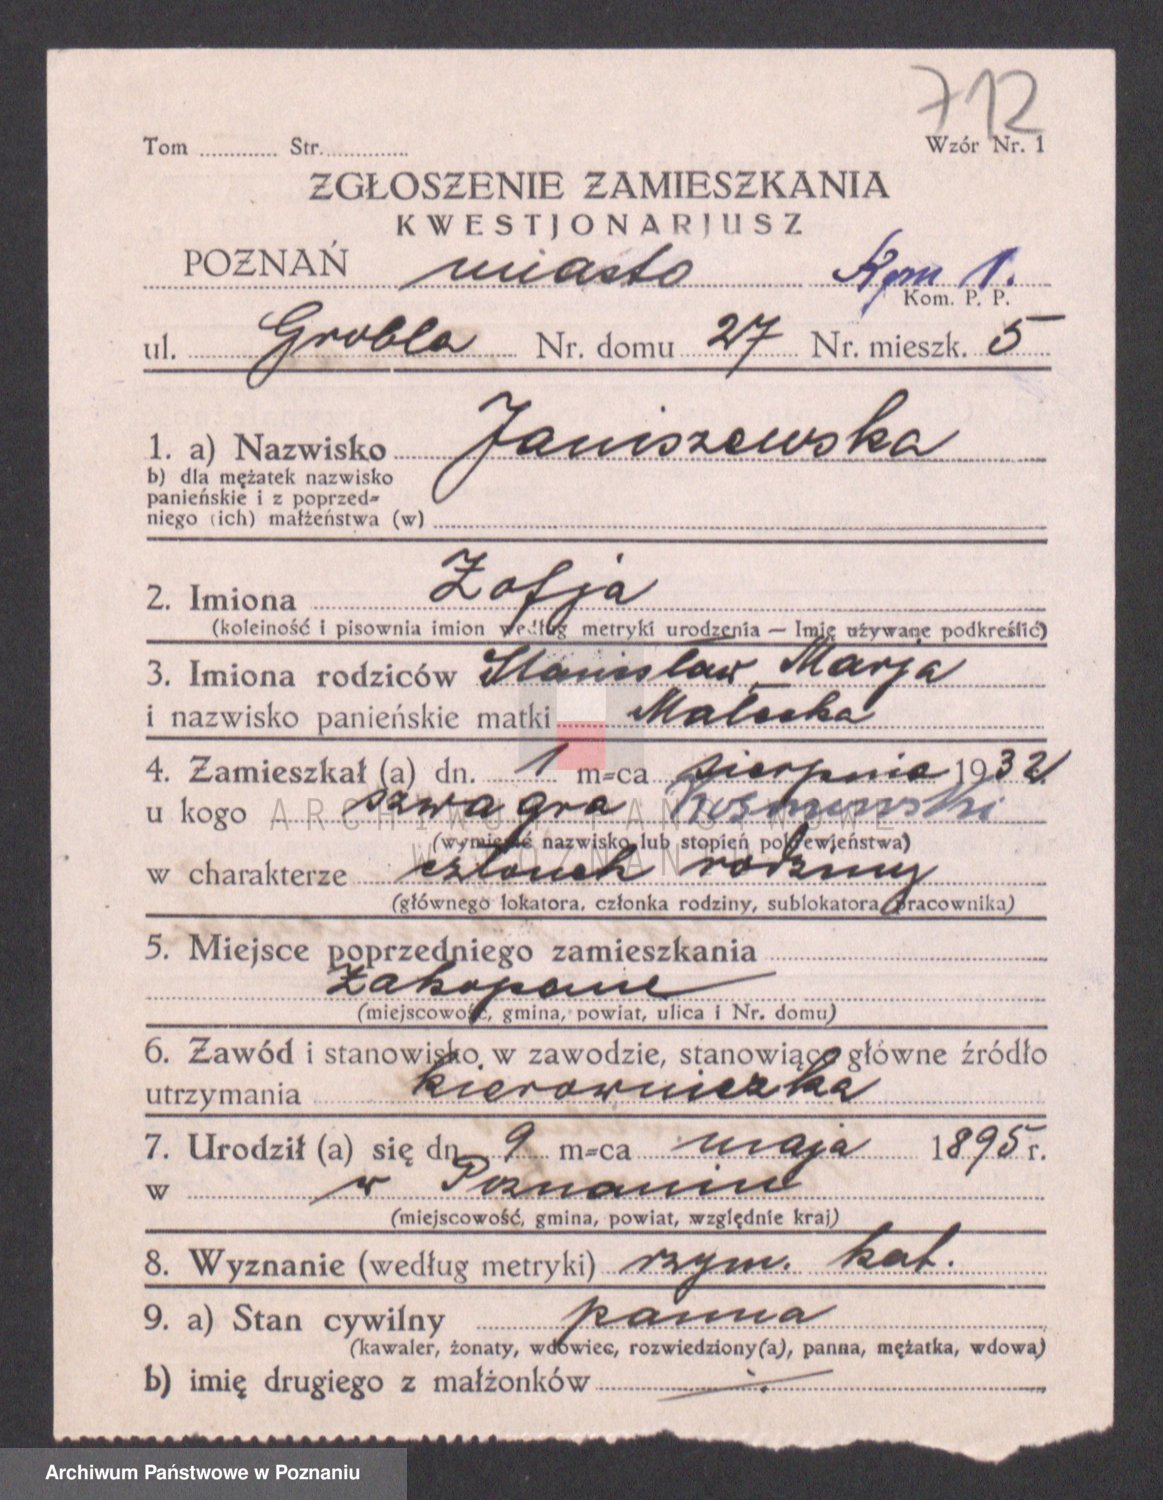 712
Tom ............ Str.............
Wzór Nr. 1
ZGŁOSZENIE ZAMIESZKANIA
KWESTJONARJUSZ
POZNAŃ miasto Kom 1.
Kom. P. P.
ul. Grobla Nr. domu 27 Nr. mieszk. 5
1. a) Nazwisko Janiszewska
b) dla mężatek nazwisko
panieńskie i z poprzed-
niego (ich) małżeństwa (w)
2. Imiona Zofja
(kolejność i pisownia imion według metryki urodzenia — Imię używane podkreślić)
3. Imiona rodziców Stanisław, Marja
i nazwisko panieńskie matki Malecka
4. Zamieszkał (a) dn. 1 m-ca sierpnia 1932
u kogo szwagra
(wymienić nazwisko lub stopień pokrewieństwa)
w charakterze członek rodziny
(głównego lokatora, członka rodziny, sublokatora, pracownika)
5. Miejsce poprzedniego zamieszkania
Zakopane
(miejscowość, gmina, powiat, ulica i Nr. domu)
6. Zawód i stanowisko w zawodzie, stanowiące główne źródło
utrzymania kierowniczka
7. Urodził (a) się dn. 9 m-ca maja 1895 r.
w w Poznaniu
(miejscowość, gmina, powiat, względnie kraj)
8. Wyznanie (według metryki) rzym. kat.
9. a) Stan cywilny panna
(kawaler, żonaty, wdowiec, rozwiedziony(a), panna, mężatka, wdowa)
b) imię drugiego z małżonków
ARCHIWUM PAŃSTWOWE
W POZNANIU
Archiwum Państwowe w Poznaniu